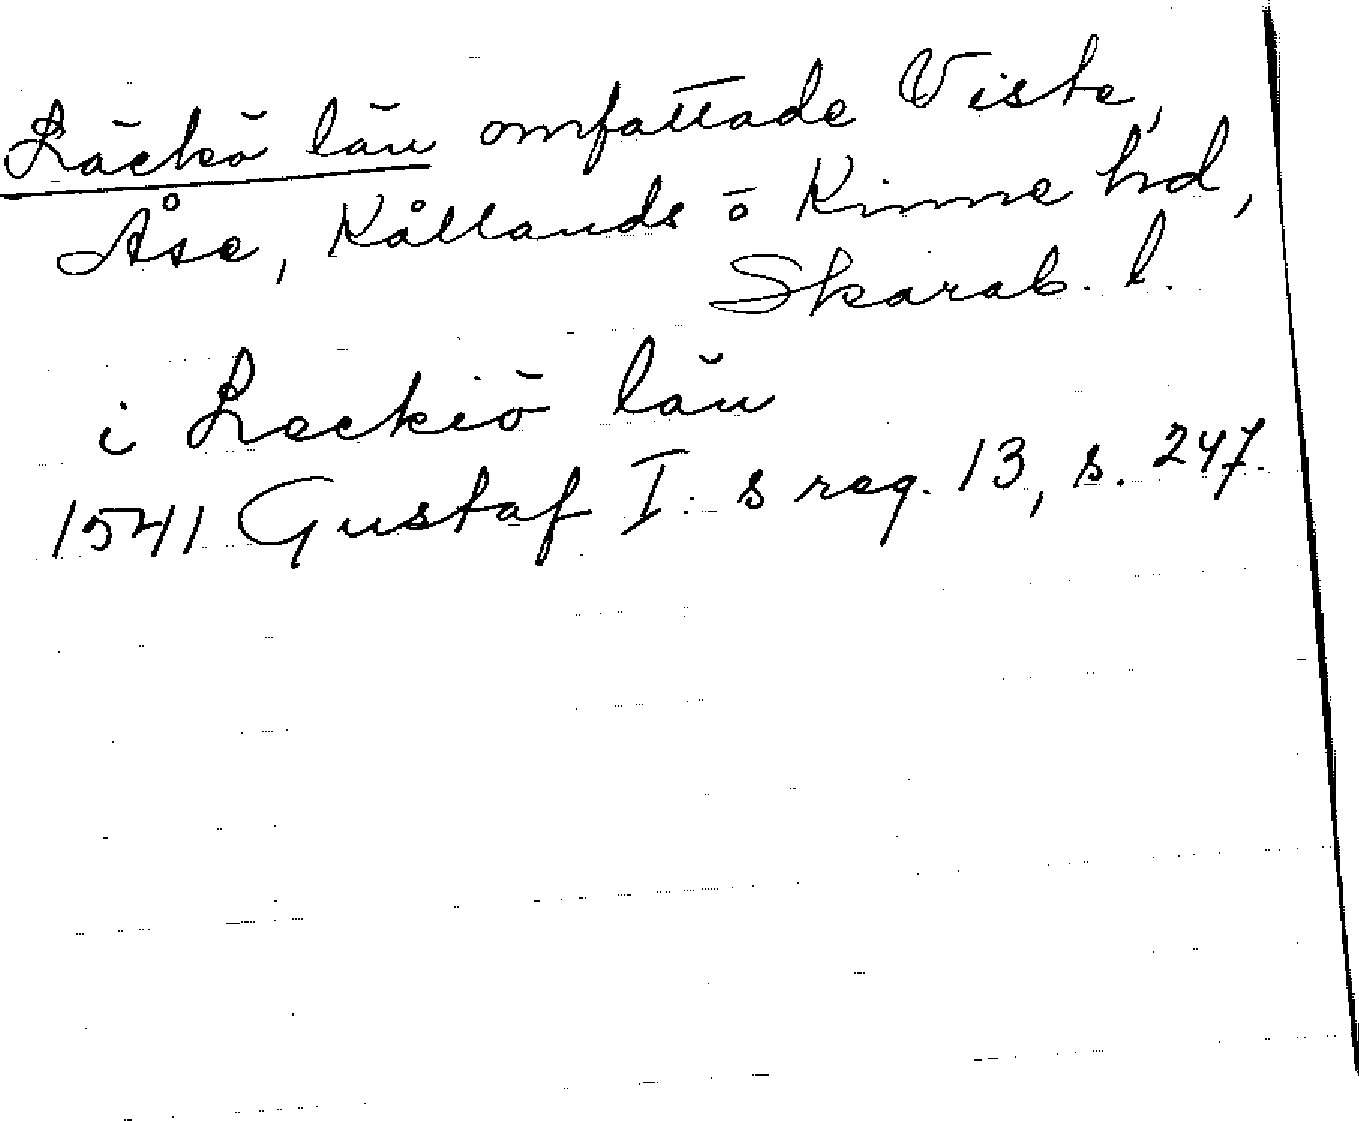 Läckö län omfattade Viste,
Åse, Kållands o Kinne hd,
Skarab. l.
i Leckiö län
1541 Gustaf I:s reg. 13, s. 247.